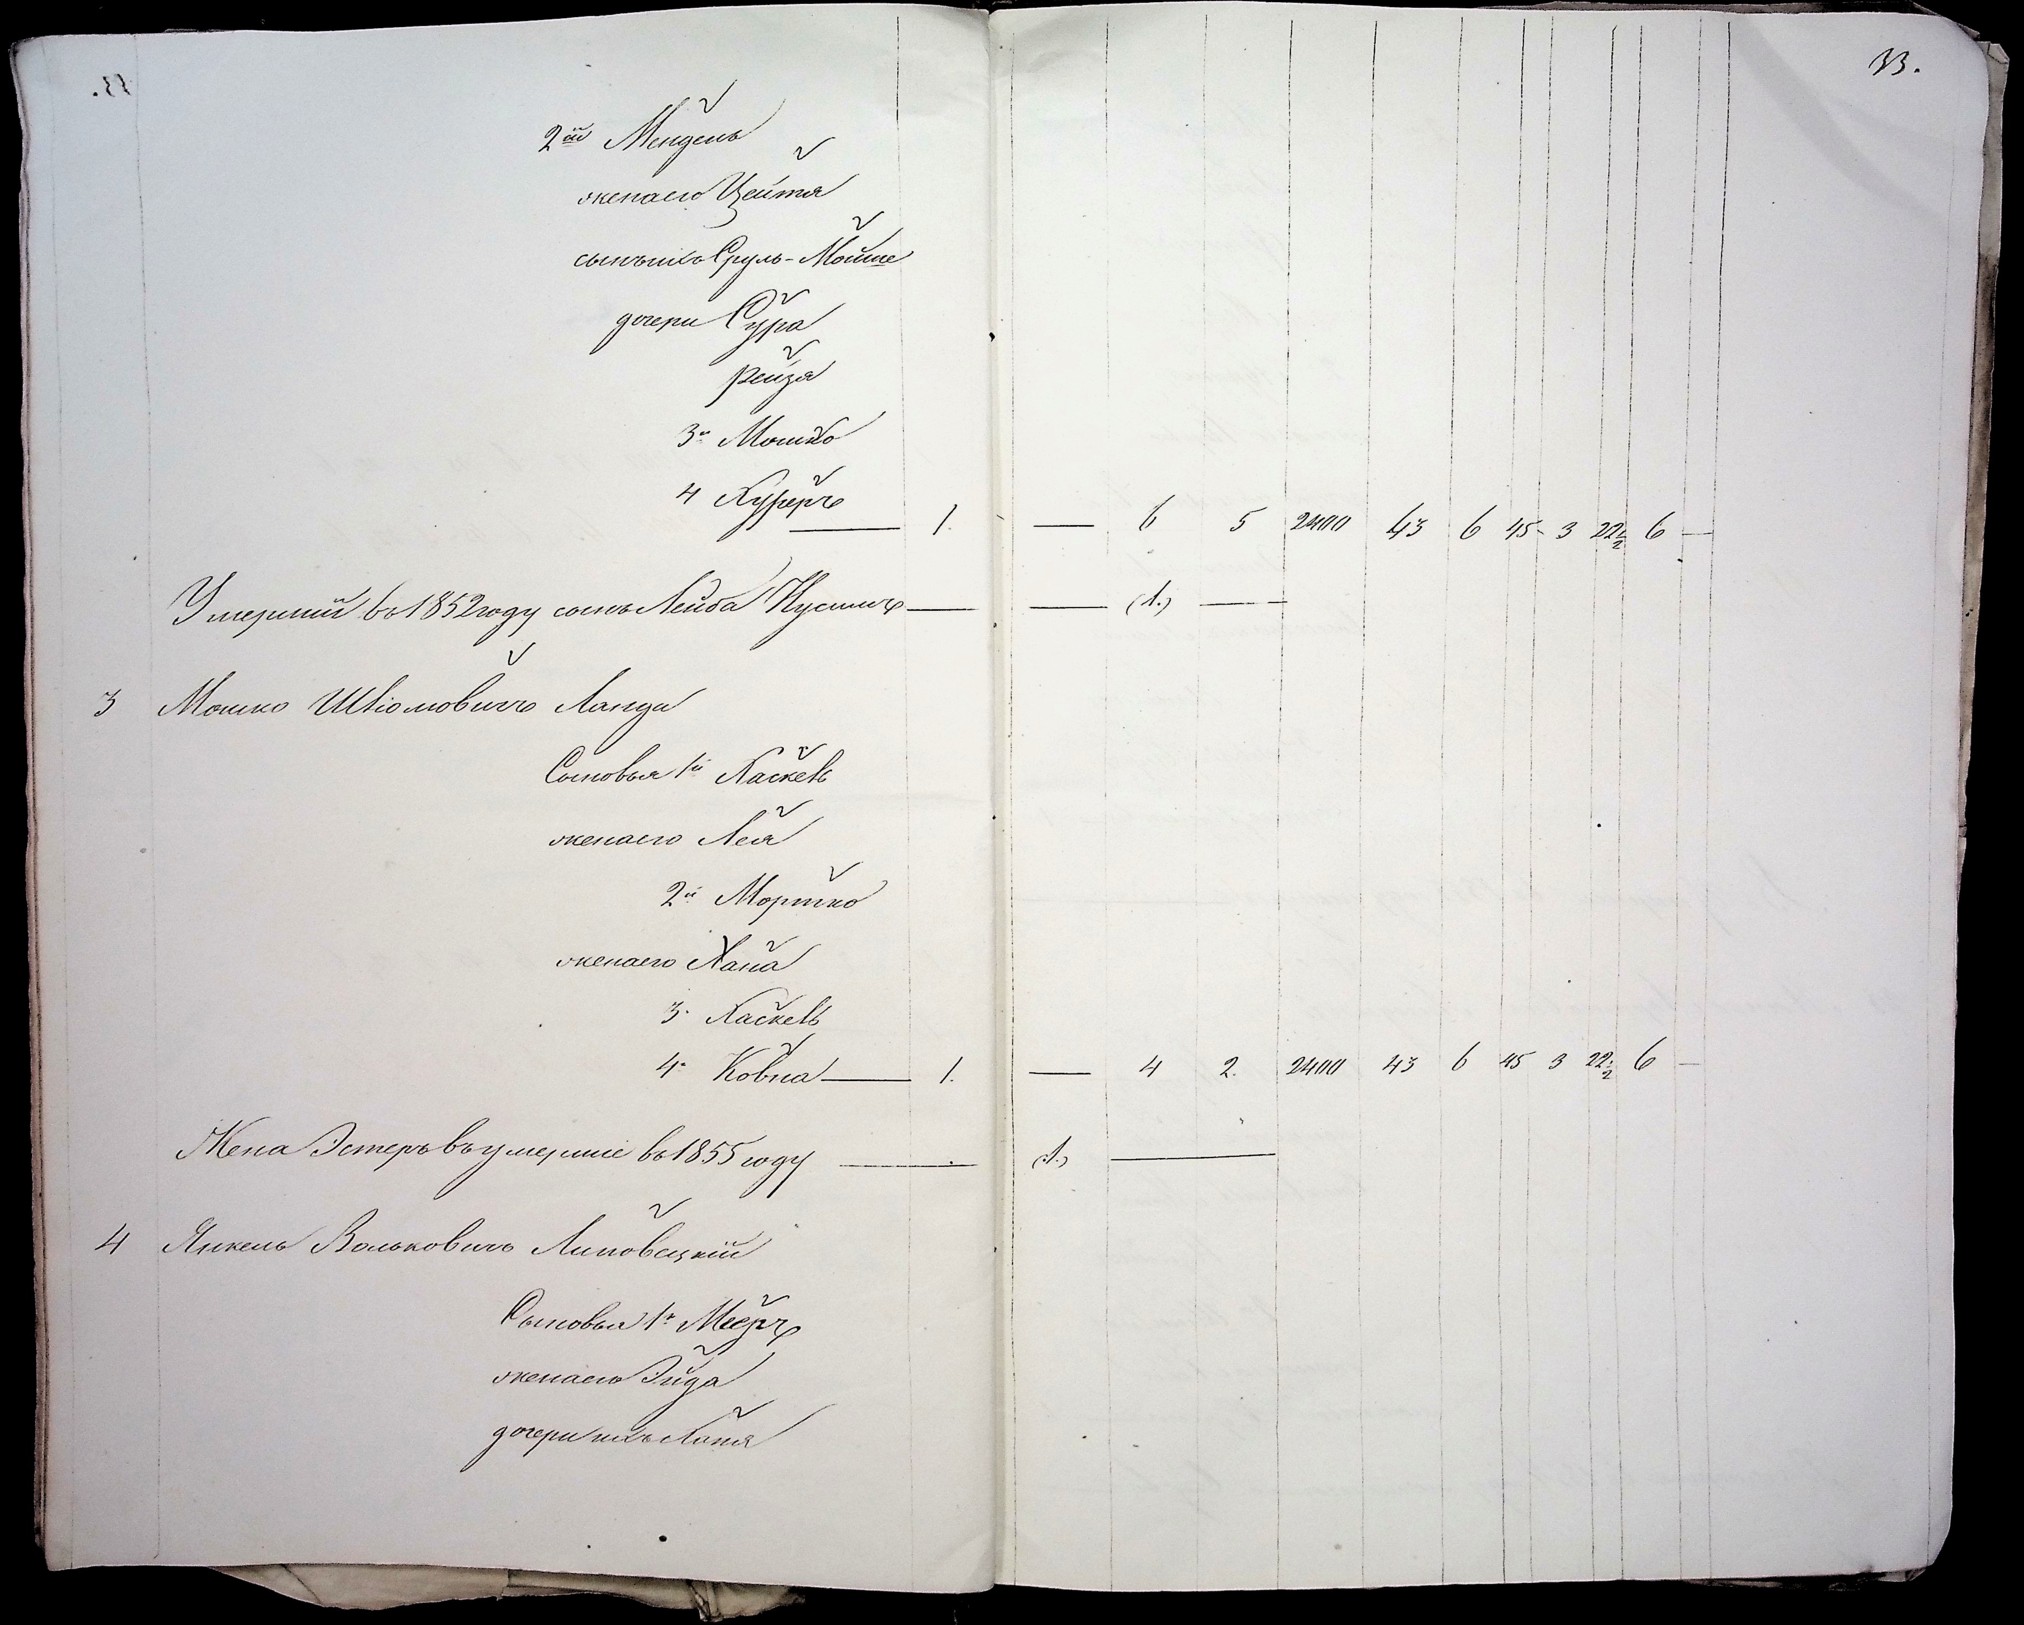 33.
2ой Мендель
жена его Цейтя
сынъ ихъ Сруль-Мойше
дочери Сура
Рейзя
3й Мошко
4 — 1. — 6 5 2400 43 6 45 3 22½ 6 —
Умерший въ 1852 году сынъ Лейба Нусимъ — — (1.) —
3 Мошко Шліомовичъ Ланда
Сыновья 1й Хаскель
жена его Лея
2й Мортко
жена его Хана
3й Хаскель
4й Ковна — 1. — 4 2. 2400 43 6 45 3 22½ 6 —
Жена Эстеръ въ умершіе въ 1855 году — (1.) —
4 Янкель Вольковичъ Липовецкій
Сыновья 1й Мееръ
жена его Эйда
дочери ихъ Ханя